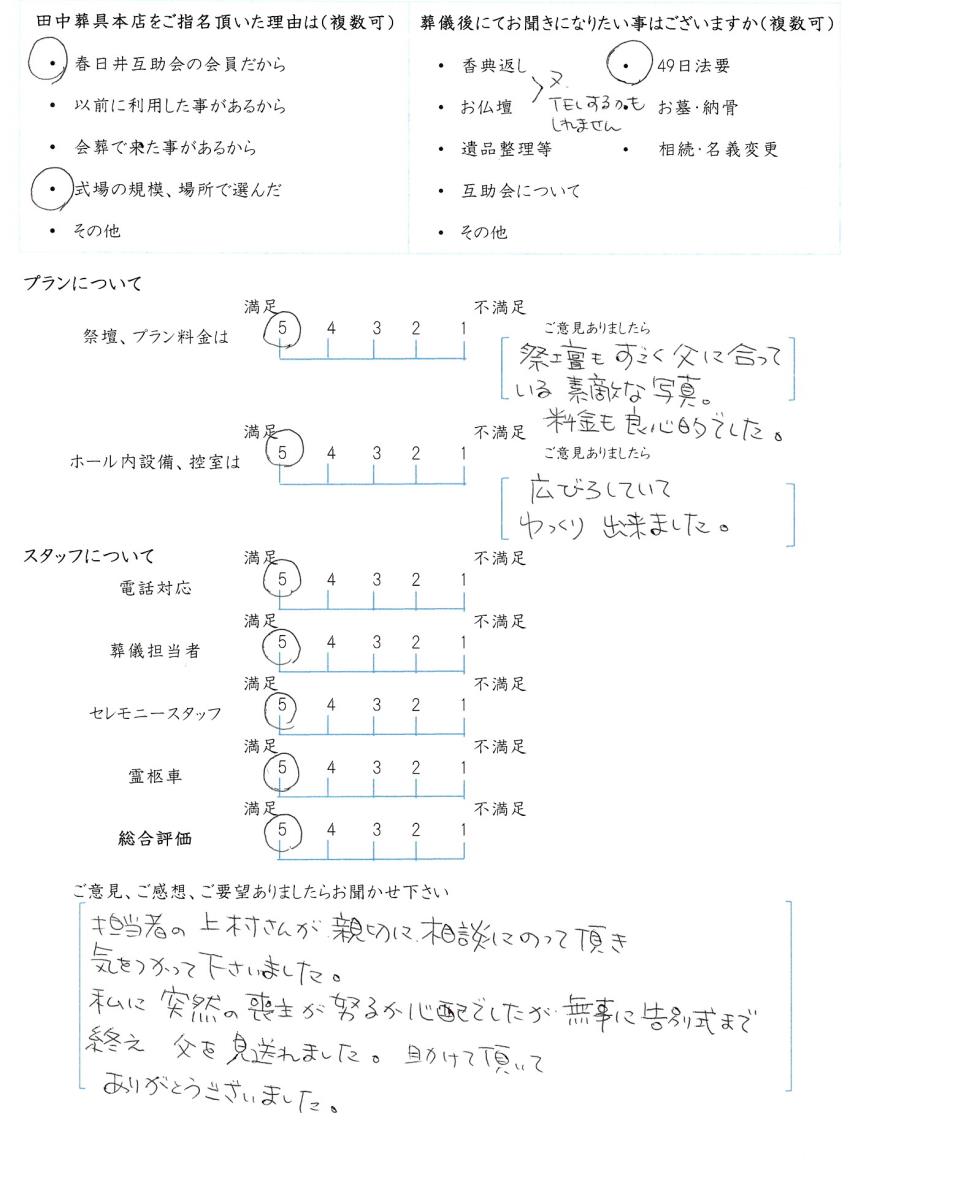 田中葬具本店をご指名頂いた理由は(複数可)
・春日井互助会の会員だから
・以前に利用した事があるから
・会葬で来た事があるから
・式場の規模、場所で選んだ
・その他
葬儀後にてお聞きになりたい事はございますか(複数可)
・香典返し ・49日法要
・お仏壇 ・お墓・納骨
又、
TELするかも
しれません
・遺品整理等 ・相続・名義変更
・互助会について
・その他
プランについて
満足 不満足
祭壇、プラン料金は 5 4 3 2 1
ご意見ありましたら
祭壇もすごく父に合って
いる素敵な写真。
料金も良心的でした。
満足 不満足
ホール内設備、控室は 5 4 3 2 1
ご意見ありましたら
広びろしていて
ゆっくり出来ました。
スタッフについて
満足 不満足
電話対応 5 4 3 2 1
満足 不満足
葬儀担当者 5 4 3 2 1
満足 不満足
セレモニースタッフ 5 4 3 2 1
満足 不満足
霊柩車 5 4 3 2 1
満足 不満足
総合評価 5 4 3 2 1
ご意見、ご感想、ご要望ありましたらお聞かせ下さい
担当者の上村さんが親切に相談にのって頂き
気をつかって下さいました。
私に突然の喪主が努るか心配でしたが無事に告別式まで
終え 父を見送れました。助けて頂いて
ありがとうございました。